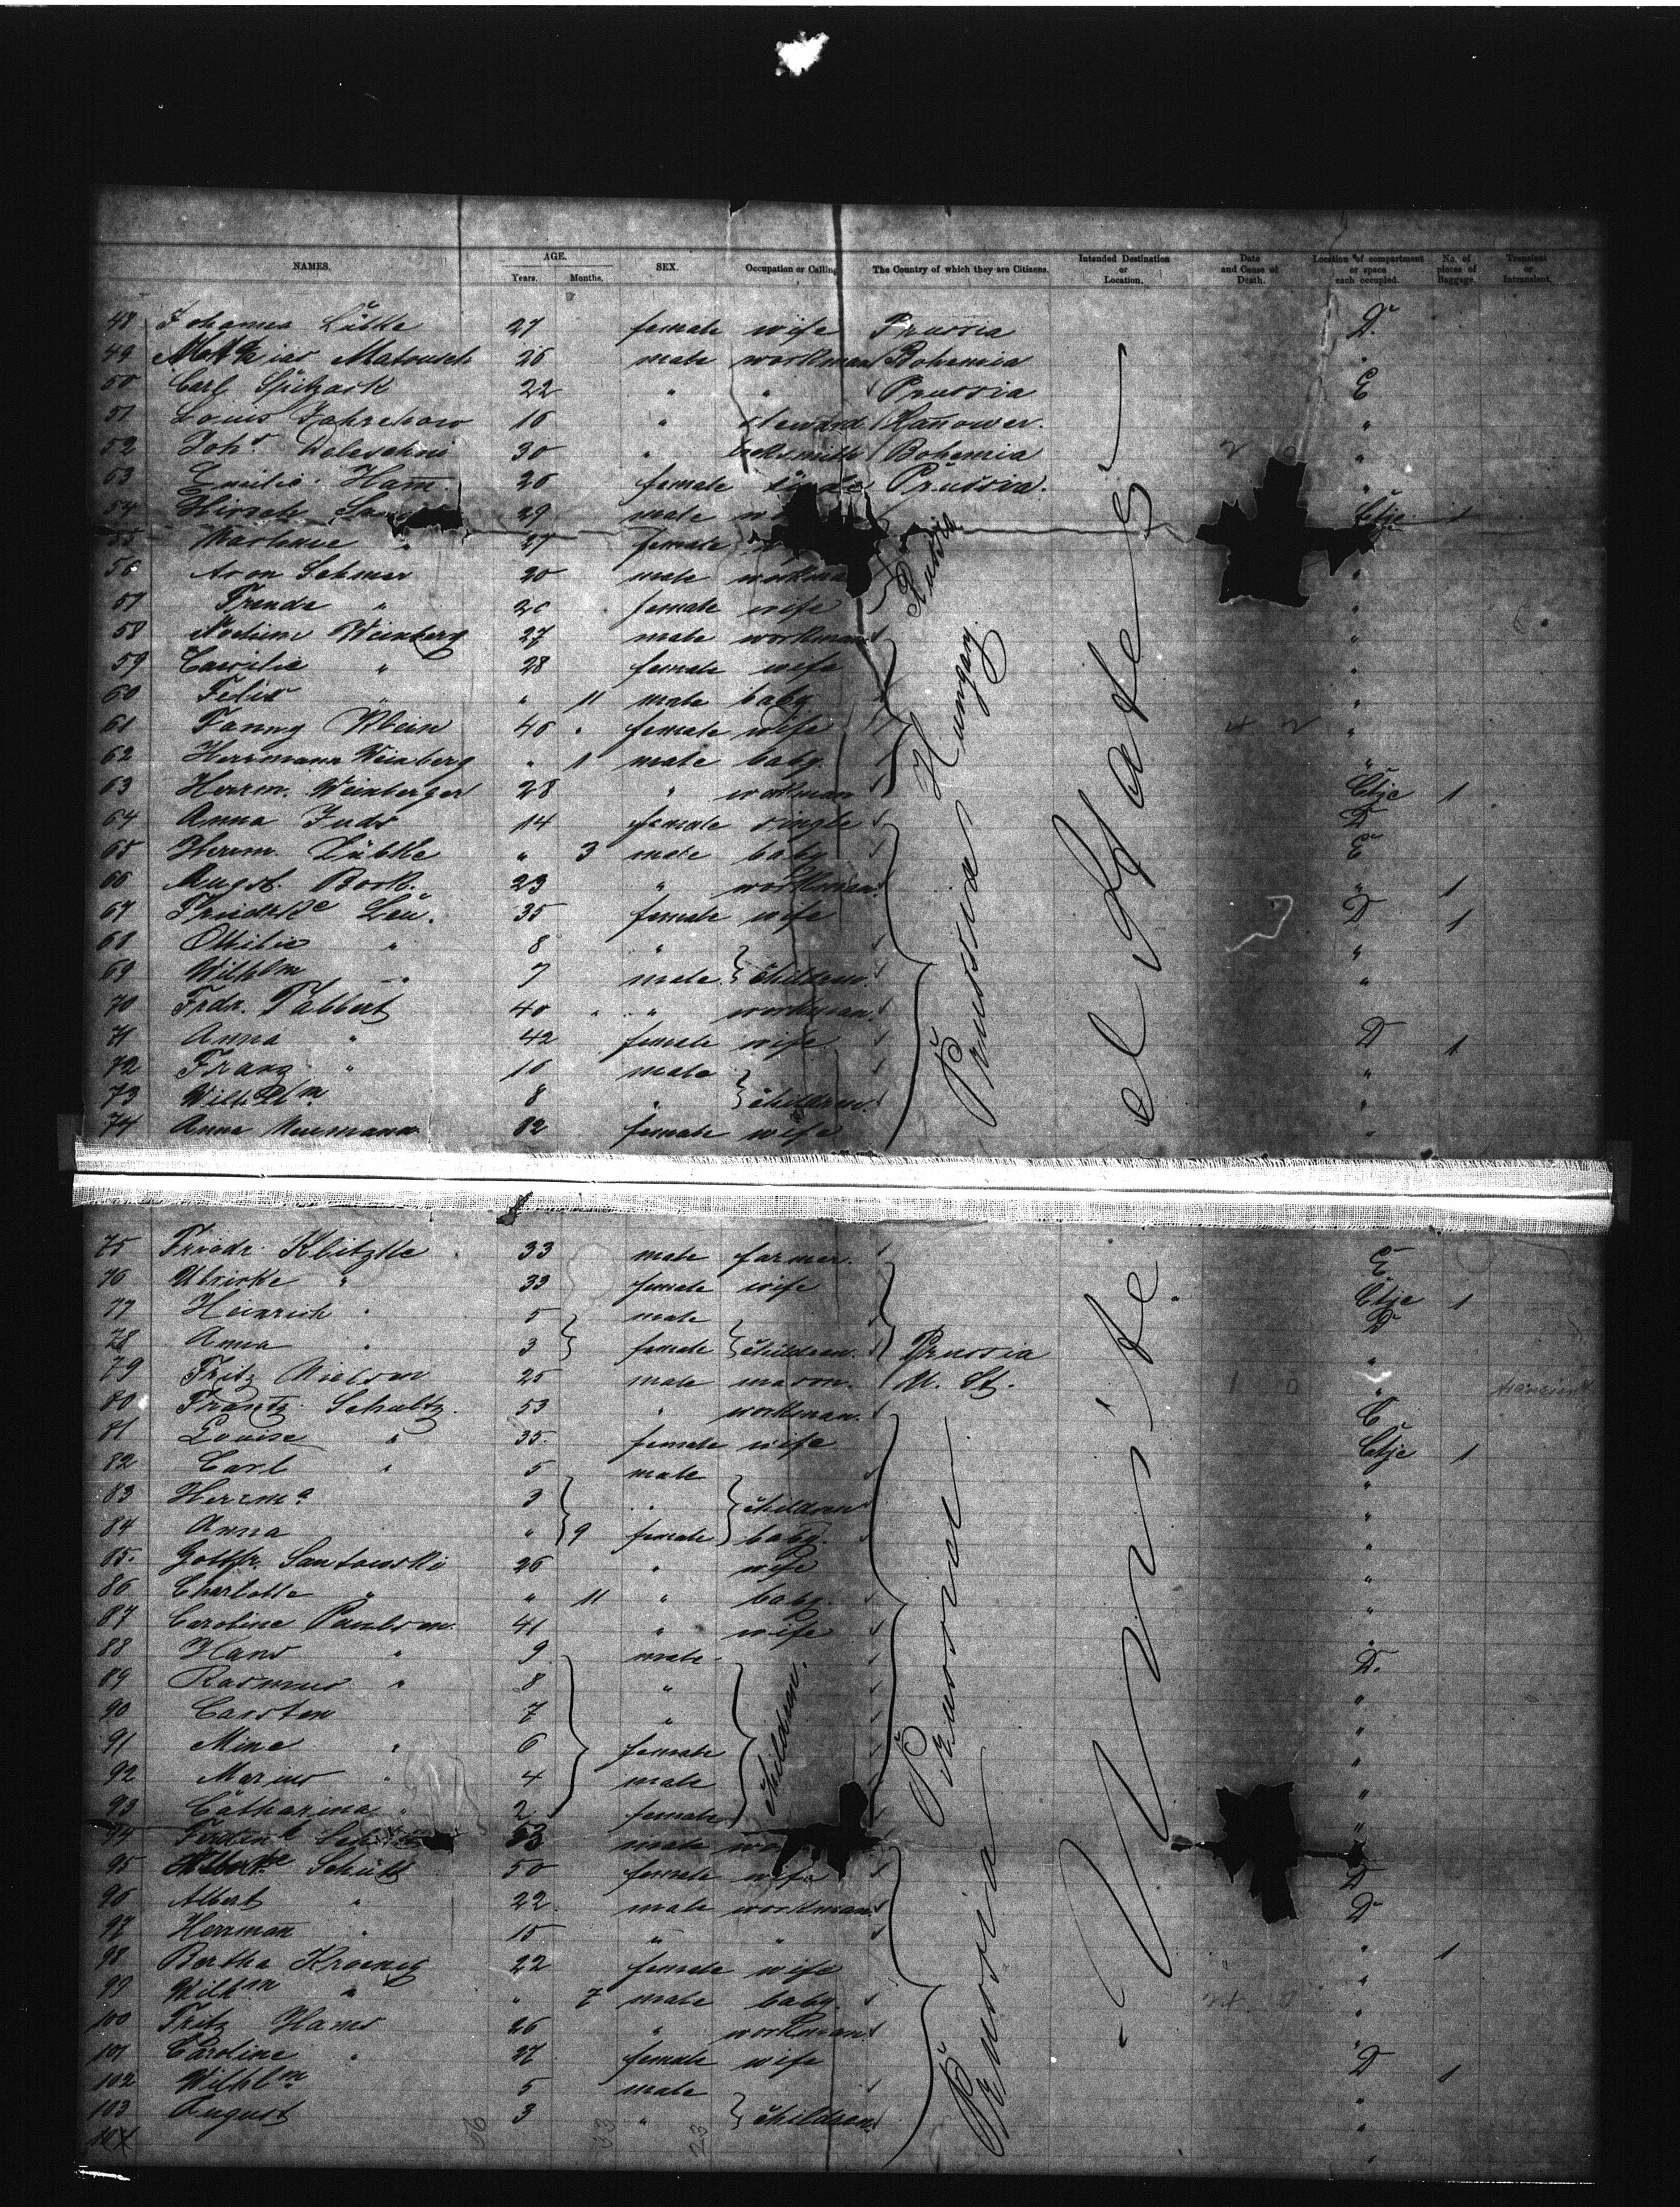 NAMES. AGE. Years. Months. SEX. Occupation or Calling The Country of which they are Citizens. Intended Destination or Location. Date and Cause of Death. Location of compartment or space each occupied. No. of pieces of Baggage. Transient or Intransient.
48 Johanna Lübke 27 female wife Prussia D.
49 Matthias Matousch 26 male workman Bohemia "
50 Carl 22 " " Prussia E
51 Louis 16 " steward Hannover. "
52 Joh. 30 " locksmith Bohemia "
53 Emilie Ham 26 female Prussia. "
54 Hirsch 29 male Ctje 1
55 27 female
56 Aron Schmer 20 male workman "
57 " 20 female wife Russia "
58 Weinberg 27 male workman "
59 Caecilie " 28 female wife "
60 Felix " " 11 male baby "
61 Fanny Klein 46 " female wife "
62 Herrmann Weinberg " 1 male baby "
63 Herrm. Weinberger 28 " workman Hungary Ctje 1
64 Anna Juds 14 female single D
65 Herrm. Lübke " 3 male baby E
66 Augst. Book. 23 " workman. " 1
67 Friedke Leu. 35 female wife D 1
68 Ottilie " 8 " "
69 Wilhlm " 7 male children. "
70 Frdr. Tabbert 40 " " workman.
71 Anna " 42 female wife D 1
72 Franz " 10 male "
73 Wilhelm 8 " children. "
74 Anna Neumann 82 female wife Prussia "
75 Friedr. Klitzke 33 male farmer. E
76 Ulricke " 33 female wife Ctje 1
77 Heinrich " 5 male D
78 Anna " 3 female children. Prussia "
79 Fritz Nielson 25 male mason. U. St. 1 0 " transient
80 Frantz Schultz. 53 " workman. C
81 Louise " 35. female wife Ctje 1
82 Carl " 5 male "
83 Herrm. 3 " children "
84 Anna " 9 female baby. "
85. Gottfr. Santowski 26 " wife "
86 Charlotte " " 11 " baby. "
87 Caroline Paulson. 41 " wife "
88 Hans " 9 male D.
89 Rasmus " 8 " "
90 Carsten 7 " "
91 Mine " 6 female "
92 Marius " 4 male "
93 Catharina " 2 female children. Prussia "
94 Ferdind 53 male "
95 Schütt 50 female wife D
96 Albert " 22 male workman D
97 Herrman " 15 " " " 1
98 Bertha Kroenig 22 female wife "
99 Wilhm " " 7 male baby. "
100 Fritz Hams 26 " workman
101 Caroline " 27 female wife D 1
102 Wilhlm 5 male "
103 August 3 " children. Prussia "
104
56 33 23
United States